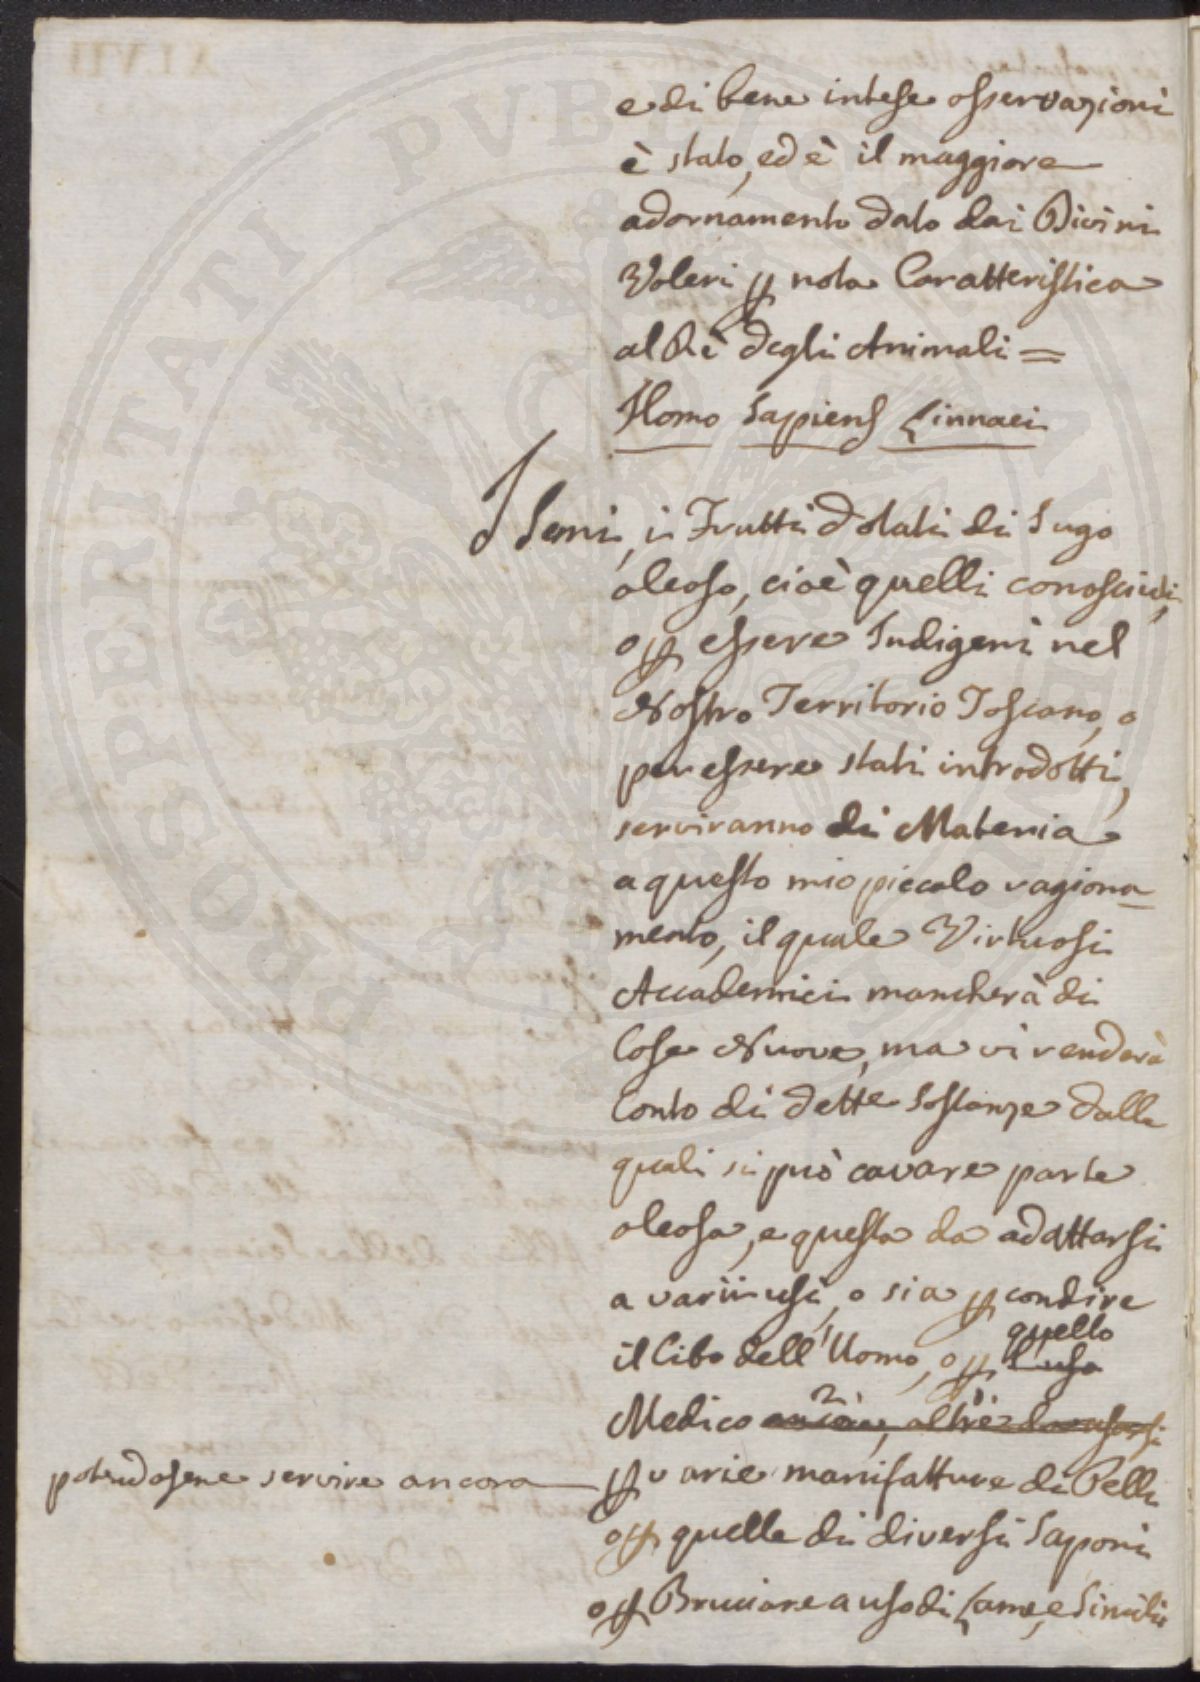 e di bene intese osservazioni
è stato, ed è il maggiore
adornamento dato dai Divini
Voleri p nota Caratteristica
al Rè degli Animali =
Homo Sapiens Linnaei
I Semi, i Frutti dotati di Sugo
oleoso, cioè quelli conosciuti,
o p essere Indigeni nel
Nostro Territorio Toscano, o
per essere stati introdotti,
serviranno di Materia
a questo mio piccolo ragiona
mento, il quale Virtuosi
Accademici mancherà di
Cose Nuove, ma vi renderà
Conto di dette Sostanze dalle
quali si può cavare parte
oleosa, e questa da adattarsi
a varii usi, o sia p condire
quello
il Cibo dell'Uomo, o p l'uso
Medico ancora, altre da usarsi
potendosene servire ancora
p varie manifatture di Pelli
o p quelle di diversi Saponi
o p Bruciare a uso di Lame, e Simili
PROSPERITATI PVBLICAE AVGENDAE